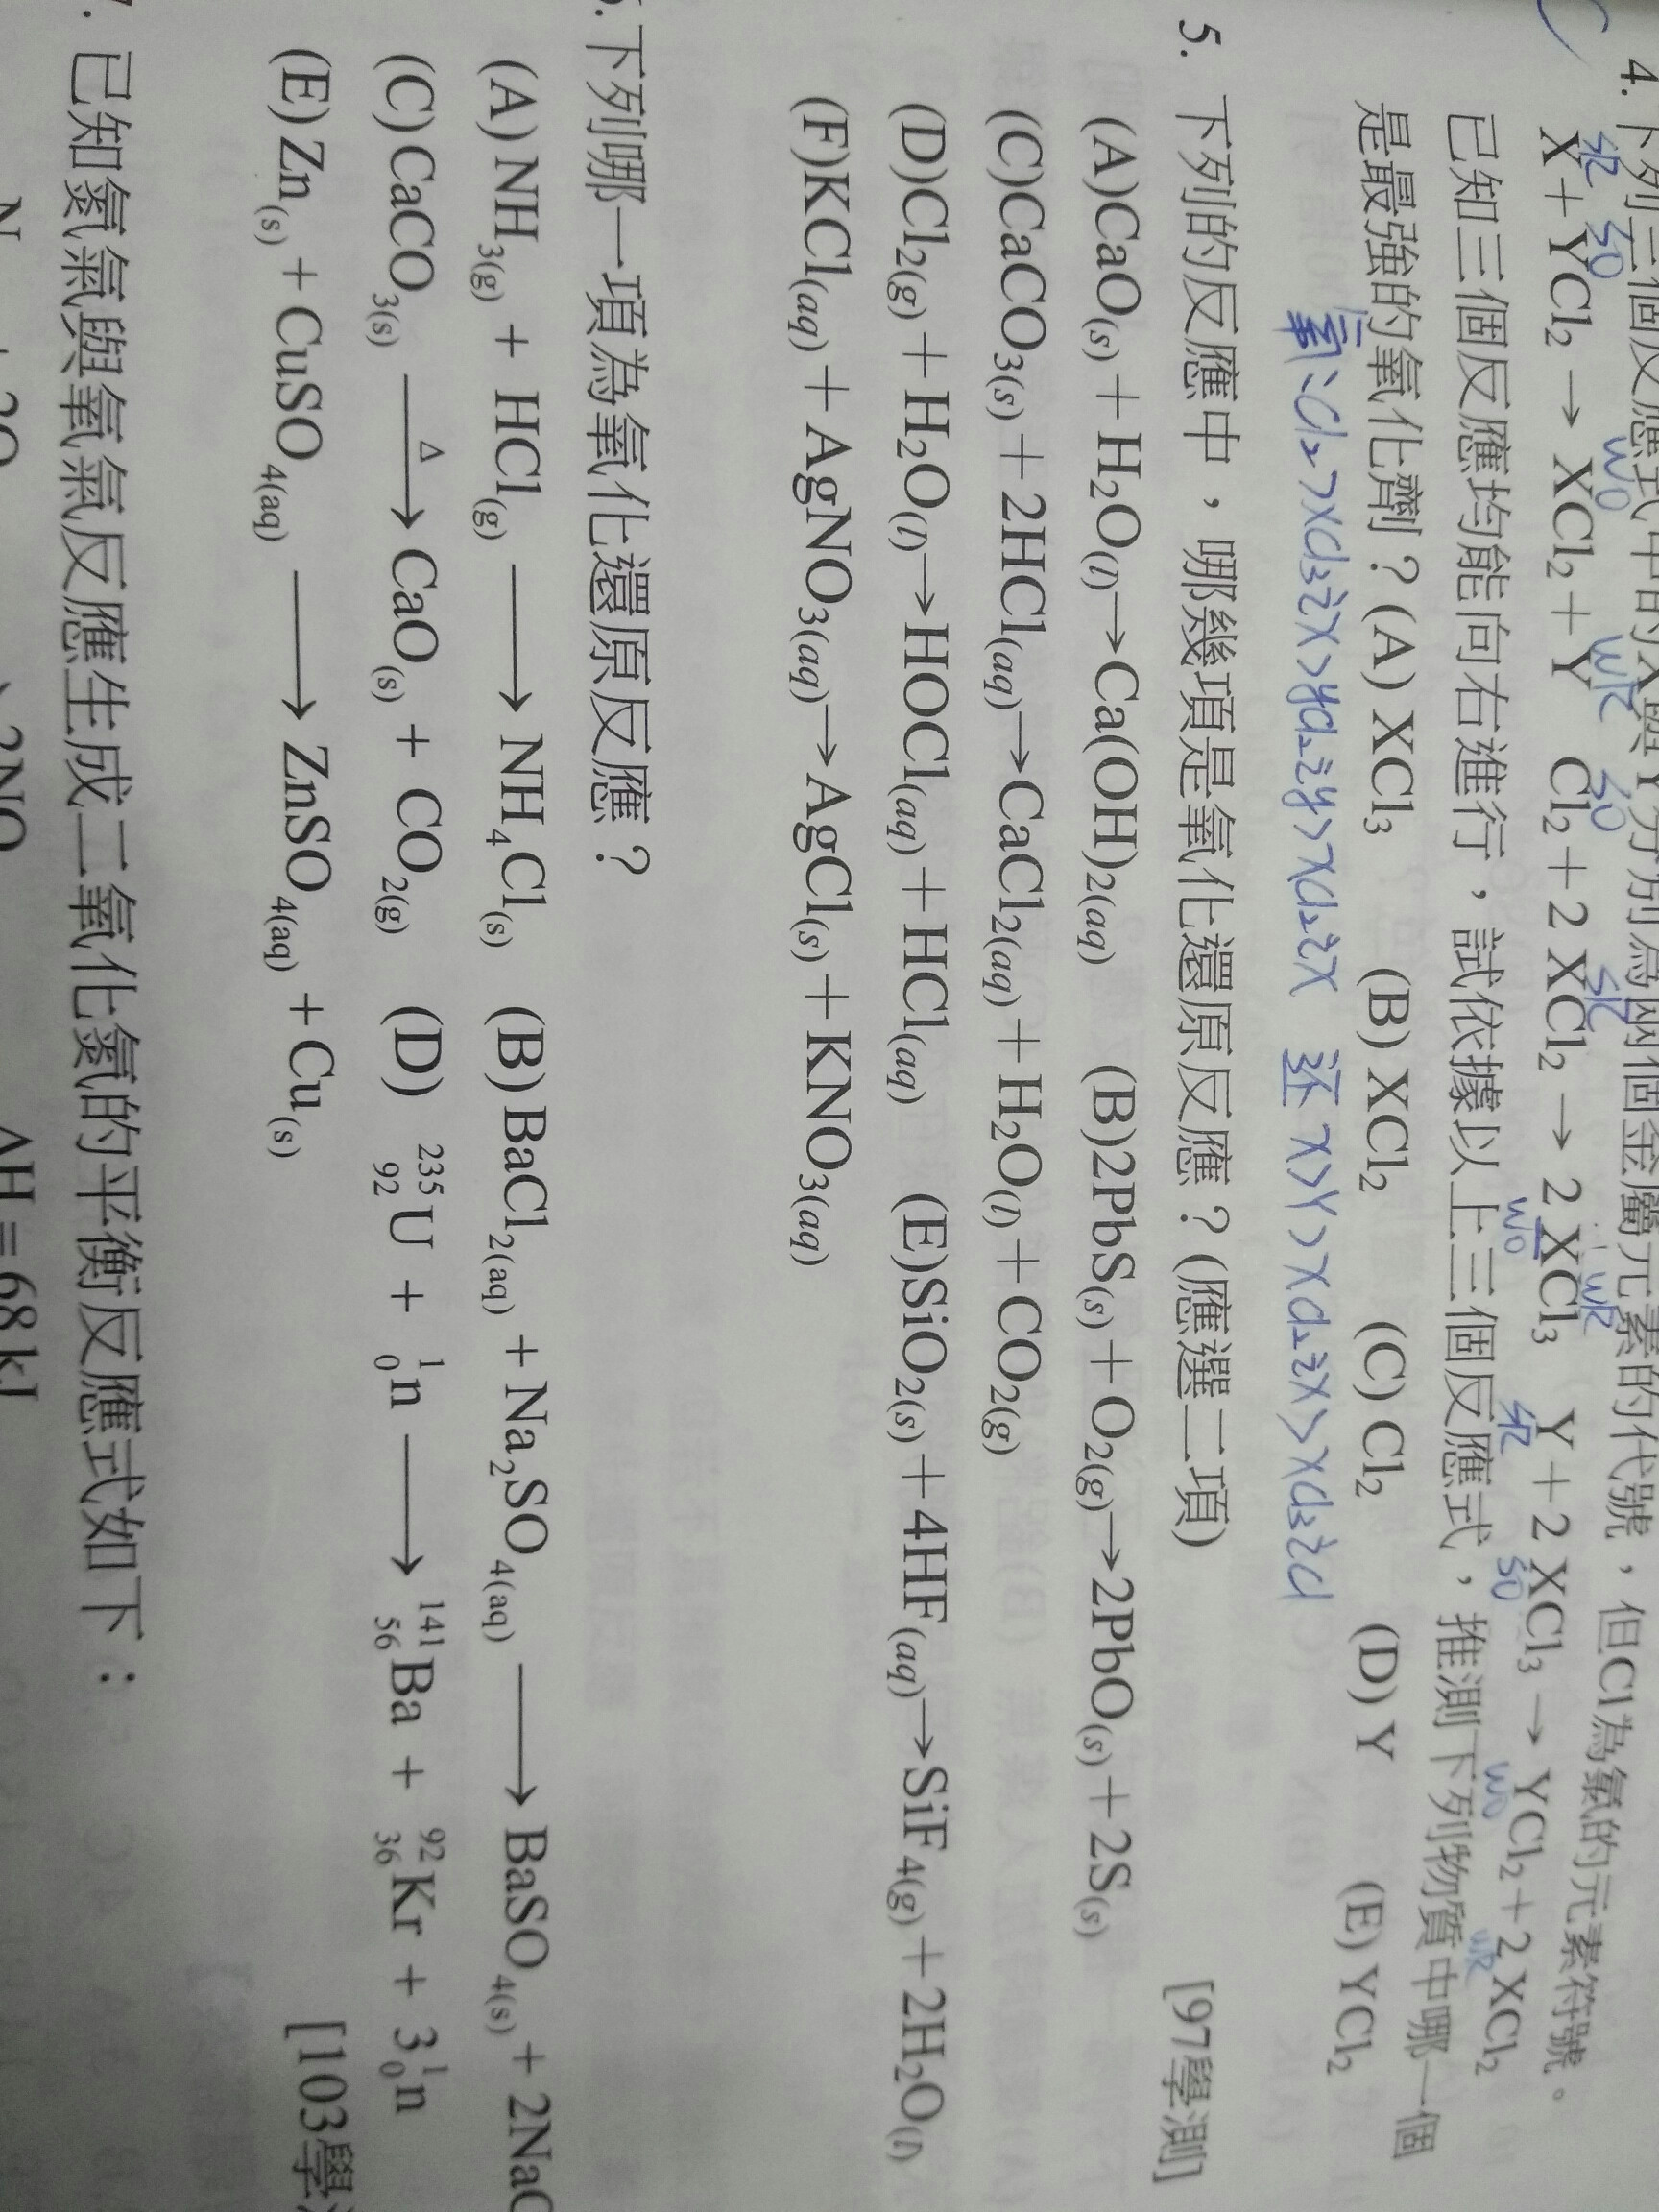 4. 下列三個反應式中的X與Y分別為兩個金屬元素的代號，但Cl為氯的元素符號。
SR SO WO WR SO SR WO WR SR SO WO WR
X + YCl₂ → XCl₂ + Y Cl₂ + 2 XCl₂ → 2 XCl₃ Y + 2 XCl₃ → YCl₂ + 2 XCl₂
已知三個反應均能向右進行，試依據以上三個反應式，推測下列物質中哪一個
是最強的氧化劑？(A) XCl₃ (B) XCl₂ (C) Cl₂ (D) Y (E) YCl₂
氧：Cl₂ > XCl₃之X > YCl₂之Y > XCl₂之X 還 X > Y > XCl₂之X > XCl₃之Cl
5. 下列的反應中，哪幾項是氧化還原反應？(應選二項) [97學測]
(A)CaO(s)＋H₂O(l)→Ca(OH)₂(aq) (B)2PbS(s)＋O₂(g)→2PbO(s)＋2S(s)
(C)CaCO₃(s)＋2HCl(aq)→CaCl₂(aq)＋H₂O(l)＋CO₂(g)
(D)Cl₂(g)＋H₂O(l)→HOCl(aq)＋HCl(aq) (E)SiO₂(s)＋4HF(aq)→SiF₄(g)＋2H₂O(l)
(F)KCl(aq)＋AgNO₃(aq)→AgCl(s)＋KNO₃(aq)
下列哪一項為氧化還原反應？
(A) NH₃(g) + HCl(g) ⟶ NH₄Cl(s) (B) BaCl₂(aq) + Na₂SO₄(aq) ⟶ BaSO₄(s) + 2NaC
(C) CaCO₃(s) ⟶ Δ CaO(s) + CO₂(g) (D) ²³⁵₉₂U + ¹₀n ⟶ ¹⁴¹₅₆Ba + ⁹²₃₆Kr + 3¹₀n
(E) Zn(s) + CuSO₄(aq) ⟶ ZnSO₄(aq) + Cu(s) [103學
已知氮氣與氧氣反應生成二氧化氮的平衡反應式如下：
ΔH = 68 kJ